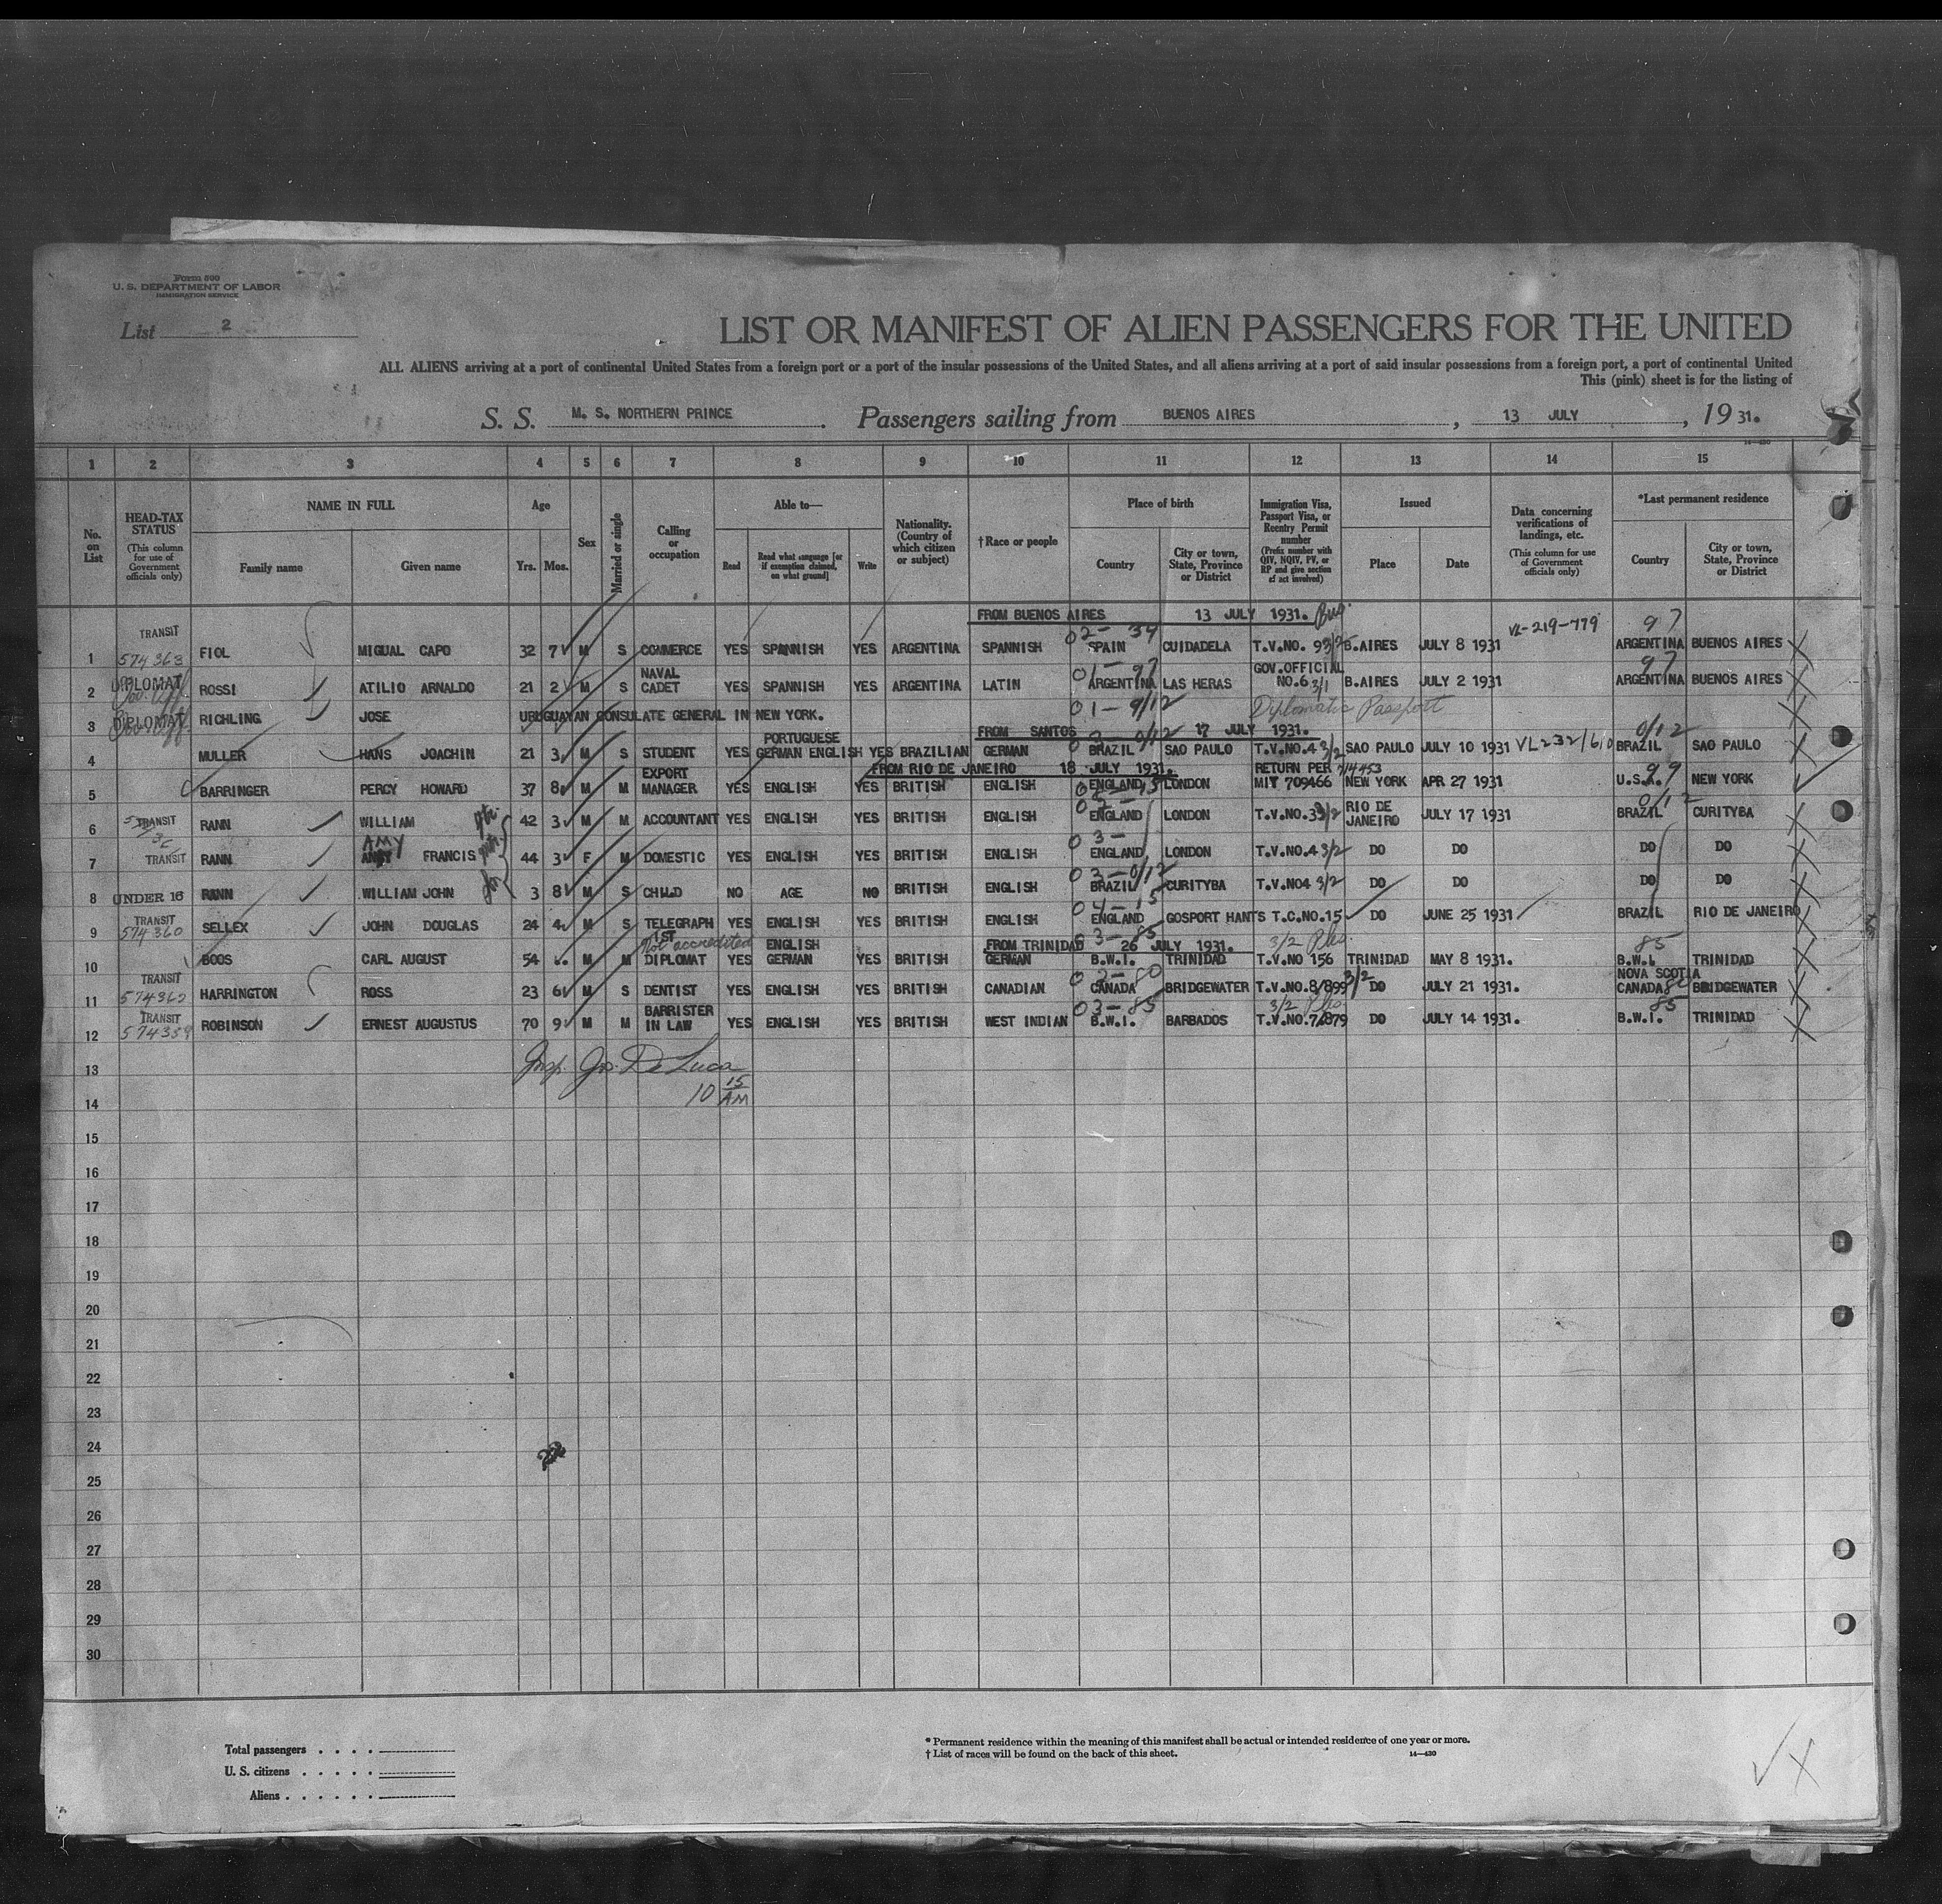 Form 500
U. S. DEPARTMENT OF LABOR
IMMIGRATION SERVICE
List 2
LIST OR MANIFEST OF ALIEN PASSENGERS FOR THE UNITED
ALL ALIENS arriving at a port of continental United States from a foreign port or a port of the insular possessions of the United States, and all aliens arriving at a port of said insular possessions from a foreign port, a port of continental United
This (pink) sheet is for the listing of
S. S. M. S. NORTHERN PRINCE. Passengers sailing from BUENOS AIRES, 13 JULY, 19 31.
14—430
1 2 3 4 5 6 7 8 9 10 11 12 13 14 15
No. on List
HEAD-TAX STATUS (This column for use of Government officials only)
NAME IN FULL
Family name
Given name
Age
Yrs. Mos.
Sex
Married or single
Calling or occupation
Able to—
Read
Read what language [or if exemption claimed, on what ground]
Write
Nationality. (Country of which citizen or subject)
†Race or people
Place of birth
Country
City or town, State, Province or District
Immigration Visa, Passport Visa, or Reentry Permit number (Prefix number with QIV, NQIV, PV, or RP and give section of act involved)
Issued
Place
Date
Data concerning verifications of landings, etc. (This column for use of Government officials only)
*Last permanent residence
Country
City or town, State, Province or District
FROM BUENOS AIRES 13 JULY 1931.
02- 34 VL-219-779 97
1 TRANSIT 574363 FIOL MIGUAL CAPO 32 7 M S COMMERCE YES SPANNISH YES ARGENTINA SPANNISH SPAIN CUIDADELA T.V.NO. 9 3/2 B.AIRES JULY 8 1931 ARGENTINA BUENOS AIRES
01- 97 97
2 DIPLOMAT Gov. Off. ROSSI ATILIO ARNALDO 21 2 M S NAVAL CADET YES SPANNISH YES ARGENTINA LATIN ARGENTINA LAS HERAS GOV.OFFICIAL NO.6 3/1 B.AIRES JULY 2 1931 ARGENTINA BUENOS AIRES
3 DIPLOMAT Gov. Off. RICHLING JOSE URUGUAYAN CONSULATE GENERAL IN NEW YORK. 01- 9/12 Diplomatic Passport
FROM SANTOS 17 JULY 1931.
0/12 0/12
4 MULLER HANS JOACHIN 21 3 M S STUDENT YES PORTUGUESE GERMAN ENGLISH YES BRAZILIAN GERMAN BRAZIL SAO PAULO T.V.NO.4 3/2 SAO PAULO JULY 10 1931 VL232/610 BRAZIL SAO PAULO
FROM RIO DE JANEIRO 18 JULY 1931.
5 BARRINGER PERCY HOWARD 37 8 M M EXPORT MANAGER YES ENGLISH YES BRITISH ENGLISH ENGLAND LONDON RETURN PER MIT 709466 NEW YORK APR 27 1931 U.S.A. 99 NEW YORK
6 TRANSIT RANN WILLIAM 42 3 M M ACCOUNTANT YES ENGLISH YES BRITISH ENGLISH ENGLAND LONDON T.V.NO.3 3/2 RIO DE JANEIRO JULY 17 1931 BRAZIL 0/12 CURITYBA
7 TRANSIT RANN AMY FRANCIS 44 3 F M DOMESTIC YES ENGLISH YES BRITISH ENGLISH 03- ENGLAND LONDON T.V.NO.4 3/2 DO DO DO DO
8 UNDER 16 RANN WILLIAM JOHN 3 8 M S CHILD NO AGE NO BRITISH ENGLISH 03-0/12 BRAZIL CURITYBA T.V.NO4 3/2 DO DO DO DO
9 TRANSIT 574360 SELLEX JOHN DOUGLAS 24 4 M S TELEGRAPH IST YES ENGLISH YES BRITISH ENGLISH 04-15 ENGLAND GOSPORT HANTS T.C.NO.15 DO JUNE 25 1931 BRAZIL RIO DE JANEIRO
FROM TRINIDAD 26 JULY 1931.
Not accredited 03-85 3/2 85
10 BOOS CARL AUGUST 54 M M DIPLOMAT YES ENGLISH GERMAN YES BRITISH GERMAN B.W.I. TRINIDAD T.V.NO 156 TRINIDAD MAY 8 1931. B.W.I. TRINIDAD
11 TRANSIT 574362 HARRINGTON ROSS 23 6 M S DENTIST YES ENGLISH YES BRITISH CANADIAN 02-80 CANADA BRIDGEWATER T.V.NO.8/899 3/2 DO JULY 21 1931. NOVA SCOTIA CANADA BRIDGEWATER
12 TRANSIT 574359 ROBINSON ERNEST AUGUSTUS 70 9 M M BARRISTER IN LAW YES ENGLISH YES BRITISH WEST INDIAN 03-85 B.W.I. BARBADOS 3/2 T.V.NO.7/879 DO JULY 14 1931. 85 B.W.I. TRINIDAD
13 Insp. Jos. De Luca
14 10 15 AM
15
16
17
18
19
20
21
22
23
24
25
26
27
28
29
30
Total passengers . . . .
U. S. citizens . . . . .
Aliens . . . . . .
* Permanent residence within the meaning of this manifest shall be actual or intended residence of one year or more.
† List of races will be found on the back of this sheet. 14—430